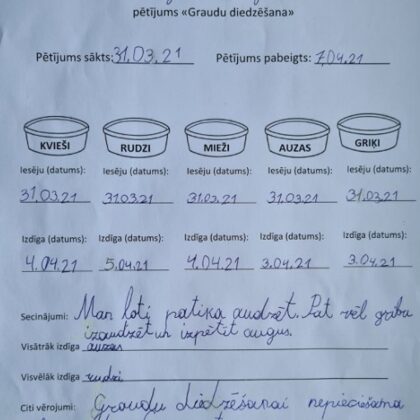 pētījums «Graudu diedzēšana»
Pētījums sākts: 31.03.21 Pētījums pabeigts: 7.04.21
KVIEŠI RUDZI MIEŽI AUZAS GRIĶI
Iesēju (datums): Iesēju (datums): Iesēju (datums): Iesēju (datums): Iesēju (datums):
31.03.21 31.03.21 31.03.21 31.03.21 31.03.21
Izdīga (datums): Izdīga (datums): Izdīga (datums): Izdīga (datums): Izdīga (datums):
4.04.21 5.04.21 4.04.21 3.04.21 3.04.21
Secinājumi: Man ļoti patika audzēt. Pat vēl
izaudzēt un izpētīt augus.
Visātrāk izdīga auzas
Visvēlāk izdīga rudzi
Citi vērojumi: Graudu diedzēšanai nepieciešama